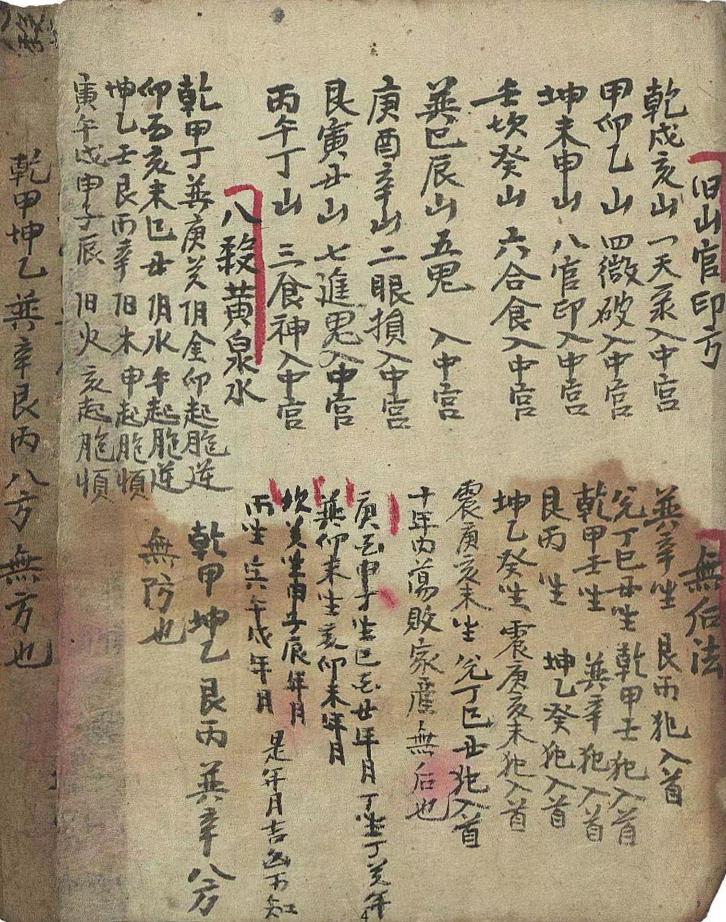 旧山官印方
乾戌亥山 一天彔入中宮
甲卯乙山 四微破入中宮
坤未申山 八官印入中宮
壬坎癸山 六合食入中宮
巽巳辰山 五鬼 入中宮
庚酉辛山 二眼損入中宮
艮寅丑山 七進鬼入中宮
丙午丁山 三食神入中宮
八殺黃泉水
乾甲丁巽庚癸 阴金卯起胞逆
卯丙亥未巳丑 阴水午起胞逆
坤乙壬艮丙辛 旧木申起胞順
寅午戌申子辰 旧火亥起胞順
無后法
巽辛生 艮丙犯入首
兌丁巳丑生 乾甲壬犯入首
乾甲壬生 巽辛犯入首
艮丙生 坤乙癸犯入首
坤乙癸生 震庚亥未犯入首
震庚亥未生 兌丁巳丑犯入首
十年內蕩敗家產無后也
申子生巳 丑年月
巽卯未生亥卯未年月
坎癸生申子辰年月
丙生寅午戌年月 是年月吉凶可知
乾甲坤乙艮丙巽辛八方
無防也
乾甲坤乙巽辛艮丙八方無方也